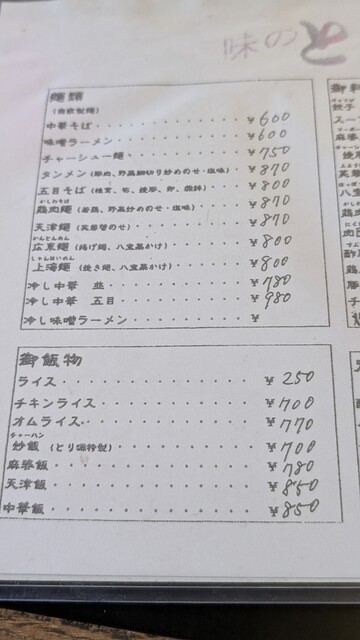 味のと
麺類
(自家製麺)
中華そば ¥600
味噌ラーメン ¥600
チャーシュー麺 ¥750
タンメン(豚肉、野菜細切り炒めのせ・塩味) ¥870
五目そば ¥800
かしわそば
鶏肉麺(若鶏、野菜炒めのせ・塩味) ¥870
天津麺(芙蓉蟹のせ) ¥870
かんとんめん
広東麺(揚げ麺、八宝菜かけ) ¥800
しゃんはいめん
上海麺(焼き麺、八宝菜かけ) ¥800
冷し中華 並 ¥780
冷し中華 五目 ¥980
冷し味噌ラーメン ¥
御飯物
ライス ¥250
チキンライス ¥700
オムライス ¥770
チャーハン
炒飯(とり源特製) ¥700
麻婆飯 ¥780
天津飯 ¥850
中華飯 ¥850
御料
餃子
スー